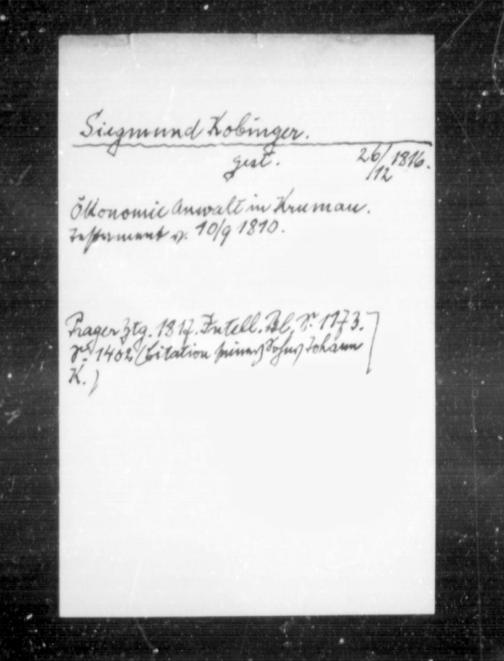 Siegmund Kobinger.
gest. 26/12 1816.
Ökonomie Anwalt in Krumau.
Testament v. 10/9 1810.
Prager Ztg. 1817. Intell. Bl. S. 1173.
S. 1402 (Citation seines Sohns Johann
K.)